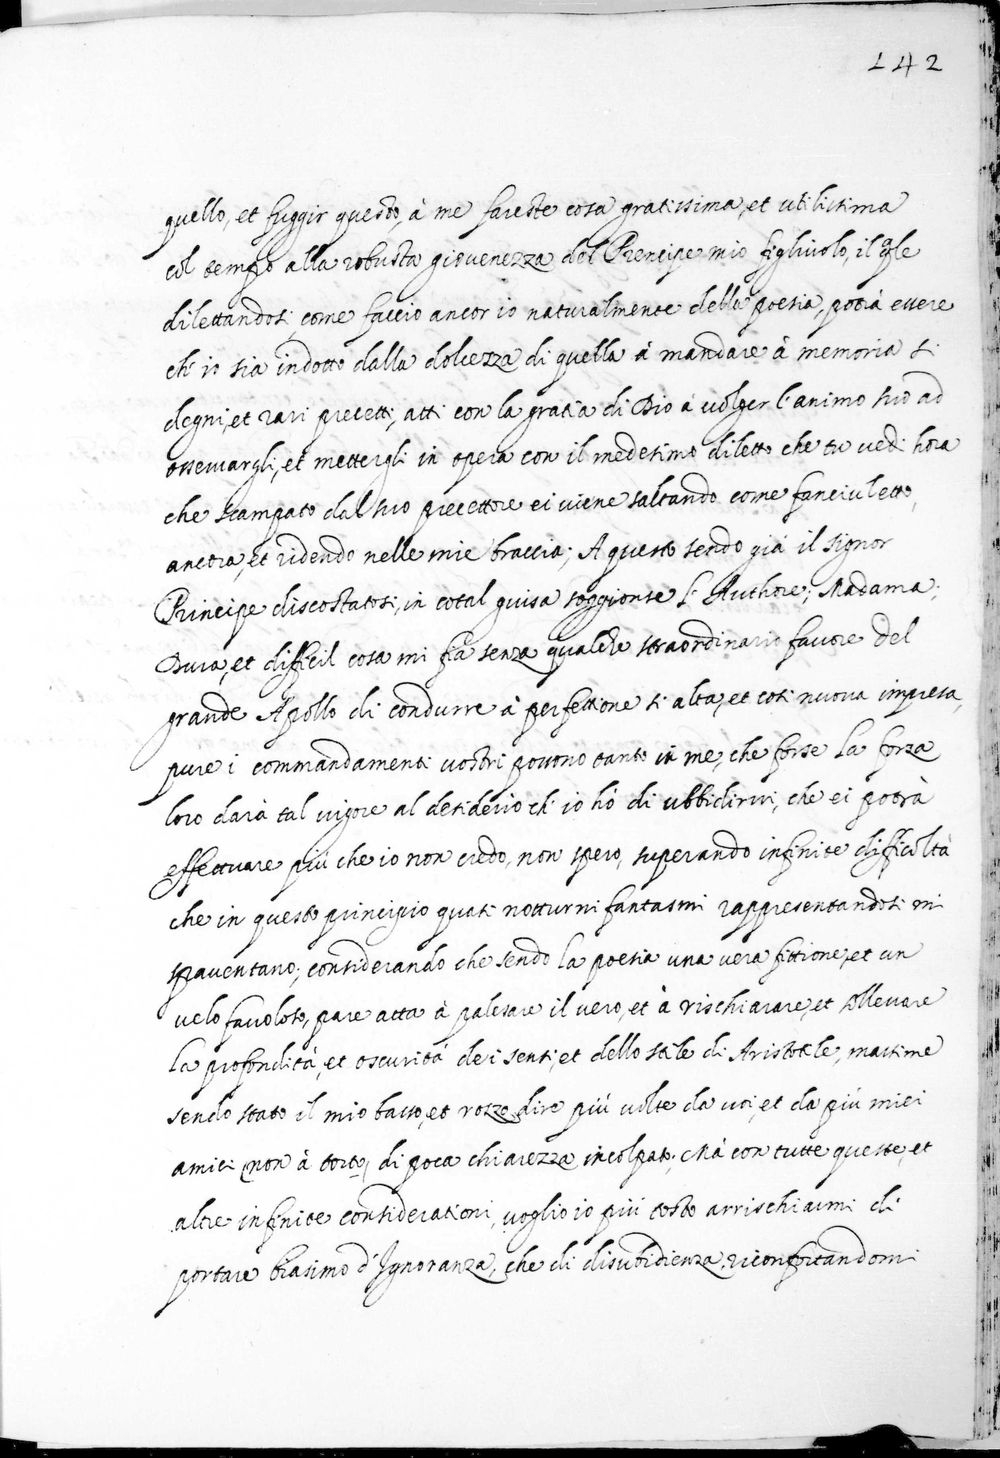 142
quello, et fuggir questo, à me fareste cosa gratissima, et utilissima
col tempo alla robusta giovenezza del Prencipe mio figliuolo, il qle
dilettandosi come faccio ancor io naturalmente della poesia, potrà essere
ch' ei sia indotto dalla dolcezza di quella à mandare à memoria sì
degni, et rari precetti, atti con la gratia di Dio à volger l'animo suo ad
osservargli, et mettergli in opera con il medesimo diletto che tu vedi hora
che scampato dal suo precettore ei viene saltando come fanciuletto,
ancora, et ridendo nelle mie braccia; A questo sendo già il signor
Principe discostatosi, in cotal guisa soggionse l'Authore; Madama;
Dura, et difficil cosa mi fia senza qualche straordinario favore del
grande Apollo di condurre à perfettione sì alta, et così nuova impresa,
pure i commandamenti vostri possono tanto in me, che forse la forza
loro darà tal vigore al desiderio ch' io hò di ubbidirvi, che ei potrà
effettuare più che io non credo, non spero, superando infinite difficoltà
che in questo principio quasi notturni fantasmi rappresentandosi mi
spaventano; considerando che sendo la poesia una vera fittione, et un
velo favoloso, pare atta à palesare il vero, et à rischiarare, et sollevare
la profondità, et oscurità dei sensi, et dello stile di Aristotile, massime
sendo stato il mio basso, et rozzo dire più volte da voi, et da più miei
amici (non à torto) di poca chiarezza incolpato; Mà con tutte queste, et
altre infinite considerationi, voglio io più tosto arrischiarmi di
portare biasimo d'Ignoranza, che di disubidienza, riconfortandomi